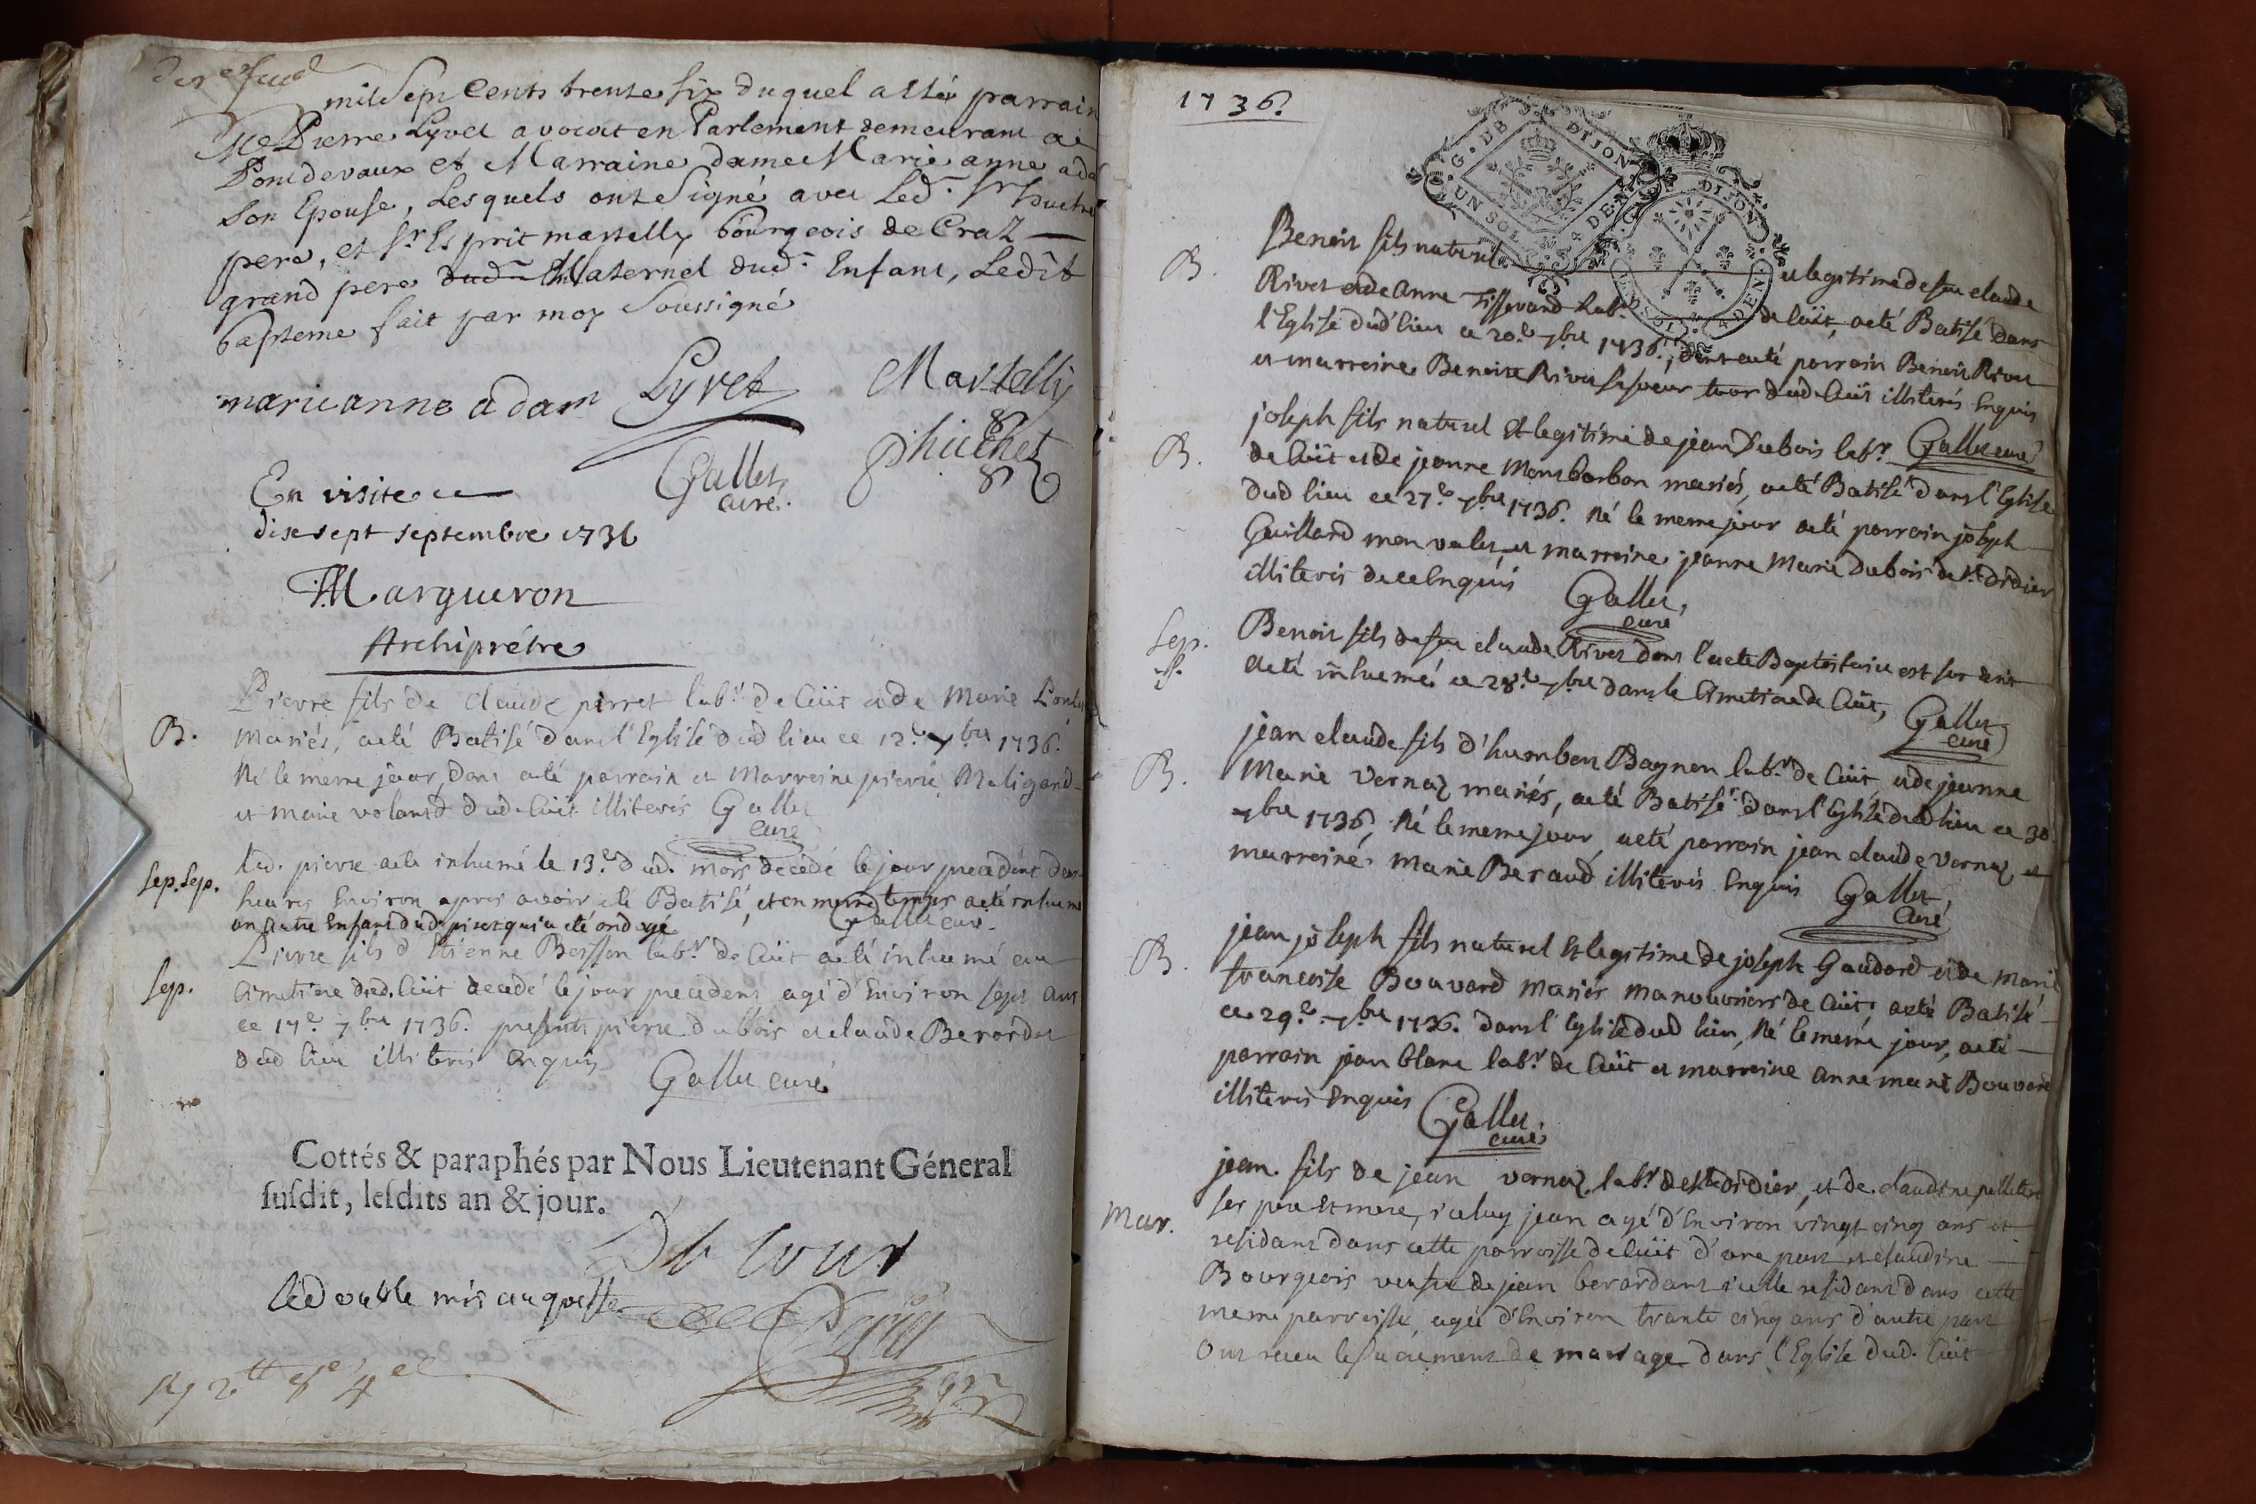 mil Sept Cents trente six duquel a Esté parrain
Me Pierre Lyvet avocat en Parlement demeurant a
Pontdevaux et Marraine dame Marie anne ada
Son Epouse, Lesquels ont Signé avec Led. Sr huchet
pere, et Sr Esprit martelly bourgeois de Craz
grand pere dud. Maternel dud. Enfant, Ledit
bapteme fait par moy Soussigné
marie anne adam Lyvet Martelly
Gallet curé. Phuchet
En visite ce
dixsept septembre 1736
Margueron
Archiprétre
B. Pierre fils de Claude perret labr de Cüit et de Marie
Mariés, a eté Batisé dans l'Eglise dud lieu ce 12e 7bre 1736.
Né le meme jour, dont a eté parrain et Marreine pierre Maligand
et marie voland dud. Cüit illiterés Gallet
curé
Sep. Sep. Led. pierre a eté inhumé le 13e dud. mois decedé le jour precedent deux
heures Environ apres avoir eté Batisé, et en meme temps a eté inhumé
un autre Enfant dud. perret qui a eté ondoyé Gallet curé.
Sep. Pierre fils d'Etienne Boisson labr de Cüit a eté inhumé au
Cimetiere dud. Cüit decedé le jour precedent agé d'Environ sept ans
ce 17e 7bre 1736. presents pierre dubois et claude Berordet
dud lieu illiterés Enquis
Gallet curé
Cottés & paraphés par Nous Lieutenant Géneral
susdit, lesdits an & jour.
Led ouble mis au greffe
1736.
B. Benoit fils naturel et legitime de feu claude
Rivet et de Anne Tisserand labr de Cüit, a eté Batisé dans
l'Eglise dud lieu ce 20e 7bre 1736, dont a eté parrain Benoit Rivet
et marreine Benoite Rivet sa soeur tous dud Cüit illiterés Enquis
Gallet curé
B. joseph fils naturel Et legitime de jean Dubois labr
de Cüit et de jeanne Montbarbon mariés, a eté Batisé dans l'Eglise
dud lieu ce 27e 7bre 1736. Né le meme jour a eté parrain joseph
Guillard mon valet, et marreine jeanne Marie Dubois de St Didier
illiterés de ce Enquis Gallet,
curé
Sep. Benoit fils de feu claude Rivet dont l'acte Baptistaire est sur ecrit
a eté inhumé ce 28e 7bre dans le Cimetiere de Cüit, Gallet
curé
B. jean claude fils d'humbert Bagnon labr de Cüit, et de jeanne
Marie Vernaz mariés, a eté Batisé dans l'Eglise dud lieu ce 30
7bre 1736, Né le meme jour, a eté parrain jean claude Vernaz et
marreine Marie Beraud illiterés Enquis Gallet,
Curé
B. jean joseph fils naturel Et legitime de joseph Gaudard et de Marie
francoise Bouvard Mariés Manouvriers de Cüit, a eté Batisé
ce 29e 7bre 1736. dans l'Eglise dud lieu, Né le meme jour, a eté
parrain jean blanc labr de Cüit et marreine anne marie Bouvard
illiterés Enquis Gallet,
curé
Mar. jean fils de jean vernaz labr de St Didier, et de claudine pelletier
ses pere Et mere, iceluy jean agé d'Environ vingt cinq ans et
residant dans cette parroisse de Cüit d'une part et claudine
Bourgeois veufve de jean berardant icelle residant dans cette
meme parroisse, agée d'Environ trante cinq ans d'autre part
Ont receu le Sacrement de mariage dans l'Eglise dud. Cüit